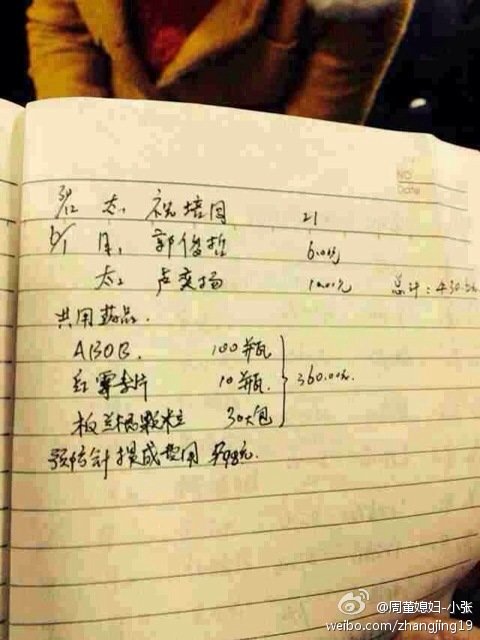 NO
Date
太. 祝培同 21
月. 郭俊哲 6.00元
太. 卢奕扬 总计:430.
共用药品.
ABOB. 100瓶
红霉素片 10瓶. 360.00元.
板兰根颗粒 30大包
预防针提成费用
@周董媳妇-小张
weibo.com/zhangjing19